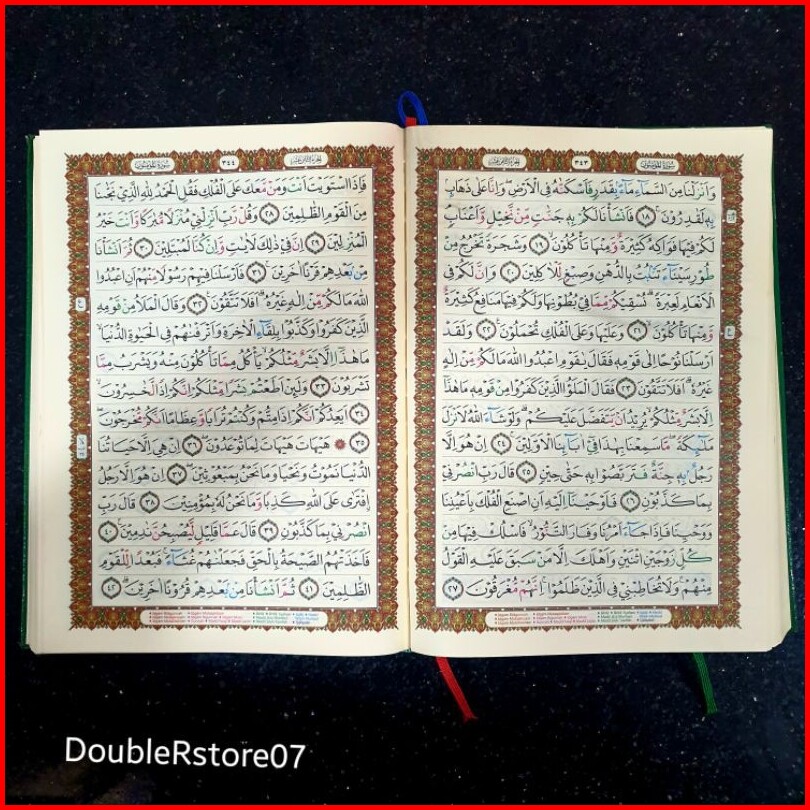 سورة المؤمنون
٣٤٣
الجزء الثامن عشر
وَاَنْزَلْنَا مِنَ السَّمَاۤءِ مَاۤءًۢ بِقَدَرٍ فَاَسْكَنّٰهُ فِى الْاَرْضِۖ وَاِنَّا عَلٰى ذَهَابٍۢ
بِهٖ لَقٰدِرُوْنَ ۚ ١٨ فَاَنْشَأْنَا لَكُمْ بِهٖ جَنّٰتٍ مِّنْ نَّخِيْلٍ وَّاَعْنَابٍۘ
لَكُمْ فِيْهَا فَوَاكِهُ كَثِيْرَةٌ وَّمِنْهَا تَأْكُلُوْنَ ۙ ١٩ وَشَجَرَةً تَخْرُجُ مِنْ
طُوْرِ سَيْنَاۤءَ تَنْۢبُتُ بِالدُّهْنِ وَصِبْغٍ لِّلْاٰكِلِيْنَ ٢٠ وَاِنَّ لَكُمْ فِى
الْاَنْعَامِ لَعِبْرَةًۗ نُسْقِيْكُمْ مِّمَّا فِيْ بُطُوْنِهَا وَلَكُمْ فِيْهَا مَنَافِعُ كَثِيْرَةٌ
وَّمِنْهَا تَأْكُلُوْنَ ۙ ٢١ وَعَلَيْهَا وَعَلَى الْفُلْكِ تُحْمَلُوْنَ ࣖ ٢٢ وَلَقَدْ
اَرْسَلْنَا نُوْحًا اِلٰى قَوْمِهٖ فَقَالَ يٰقَوْمِ اعْبُدُوا اللّٰهَ مَا لَكُمْ مِّنْ اِلٰهٍ
غَيْرُهٗۗ اَفَلَا تَتَّقُوْنَ ٢٣ فَقَالَ الْمَلَؤُا الَّذِيْنَ كَفَرُوْا مِنْ قَوْمِهٖ مَا هٰذَآ
اِلَّا بَشَرٌ مِّثْلُكُمْۙ يُرِيْدُ اَنْ يَّتَفَضَّلَ عَلَيْكُمْۗ وَلَوْ شَاۤءَ اللّٰهُ لَاَنْزَلَ
مَلٰۤىِٕكَةً ۖمَّا سَمِعْنَا بِهٰذَا فِيْٓ اٰبَاۤىِٕنَا الْاَوَّلِيْنَ ۚ ٢٤ اِنْ هُوَ اِلَّا
رَجُلٌۢ بِهٖ جِنَّةٌ فَتَرَبَّصُوْا بِهٖ حَتّٰى حِيْنٍ ٢٥ قَالَ رَبِّ انْصُرْنِيْ
بِمَا كَذَّبُوْنِ ٢٦ فَاَوْحَيْنَآ اِلَيْهِ اَنِ اصْنَعِ الْفُلْكَ بِاَعْيُنِنَا
وَوَحْيِنَا فَاِذَا جَاۤءَ اَمْرُنَا وَفَارَ التَّنُّوْرُۙ فَاسْلُكْ فِيْهَا مِنْ
كُلٍّ زَوْجَيْنِ اثْنَيْنِ وَاَهْلَكَ اِلَّا مَنْ سَبَقَ عَلَيْهِ الْقَوْلُ
مِنْهُمْۚ وَلَا تُخَاطِبْنِيْ فِى الَّذِيْنَ ظَلَمُوْاۚ اِنَّهُمْ مُّغْرَقُوْنَ ٢٧
سورة المؤمنون
٣٤٤
الجزء الثامن عشر
فَاِذَا اسْتَوَيْتَ اَنْتَ وَمَنْ مَّعَكَ عَلَى الْفُلْكِ فَقُلِ الْحَمْدُ لِلّٰهِ الَّذِيْ نَجّٰىنَا
مِنَ الْقَوْمِ الظّٰلِمِيْنَ ٢٨ وَقُلْ رَّبِّ اَنْزِلْنِيْ مُنْزَلًا مُّبٰرَكًا وَّاَنْتَ خَيْرُ
الْمُنْزِلِيْنَ ٢٩ اِنَّ فِيْ ذٰلِكَ لَاٰيٰتٍ وَّاِنْ كُنَّا لَمُبْتَلِيْنَ ٣٠ ثُمَّ اَنْشَأْنَا
مِنْۢ بَعْدِهِمْ قَرْنًا اٰخَرِيْنَ ۚ ٣١ فَاَرْسَلْنَا فِيْهِمْ رَسُوْلًا مِّنْهُمْ اَنِ اعْبُدُوا
اللّٰهَ مَا لَكُمْ مِّنْ اِلٰهٍ غَيْرُهٗۗ اَفَلَا تَتَّقُوْنَ ࣖ ٣٢ وَقَالَ الْمَلَاُ مِنْ قَوْمِهِ
الَّذِيْنَ كَفَرُوْا وَكَذَّبُوْا بِلِقَاۤءِ الْاٰخِرَةِ وَاَتْرَفْنٰهُمْ فِى الْحَيٰوةِ الدُّنْيَاۙ
مَا هٰذَآ اِلَّا بَشَرٌ مِّثْلُكُمْۙ يَأْكُلُ مِمَّا تَأْكُلُوْنَ مِنْهُ وَيَشْرَبُ مِمَّا
تَشْرَبُوْنَ ۙ ٣٣ وَلَىِٕنْ اَطَعْتُمْ بَشَرًا مِّثْلَكُمْ اِنَّكُمْ اِذًا لَّخٰسِرُوْنَ ۙ
٣٤ اَيَعِدُكُمْ اَنَّكُمْ اِذَا مِتُّمْ وَكُنْتُمْ تُرَابًا وَّعِظَامًا اَنَّكُمْ مُّخْرَجُوْنَ ۖ
٣٥ ۞ هَيْهَاتَ هَيْهَاتَ لِمَا تُوْعَدُوْنَ ۖ ٣٦ اِنْ هِيَ اِلَّا حَيَاتُنَا
الدُّنْيَا نَمُوْتُ وَنَحْيَا وَمَا نَحْنُ بِمَبْعُوْثِيْنَ ۖ ٣٧ اِنْ هُوَ اِلَّا رَجُلُ
ۨافْتَرٰى عَلَى اللّٰهِ كَذِبًا وَّمَا نَحْنُ لَهٗ بِمُؤْمِنِيْنَ ٣٨ قَالَ رَبِّ
انْصُرْنِيْ بِمَا كَذَّبُوْنِ ٣٩ قَالَ عَمَّا قَلِيْلٍ لَّيُصْبِحُنَّ نٰدِمِيْنَ ۚ ٤٠
فَاَخَذَتْهُمُ الصَّيْحَةُ بِالْحَقِّ فَجَعَلْنٰهُمْ غُثَاۤءًۚ فَبُعْدًا لِّلْقَوْمِ
الظّٰلِمِيْنَ ٤١ ثُمَّ اَنْشَأْنَا مِنْۢ بَعْدِهِمْ قُرُوْنًا اٰخَرِيْنَ ۗ ٤٢
DoubleRstore07